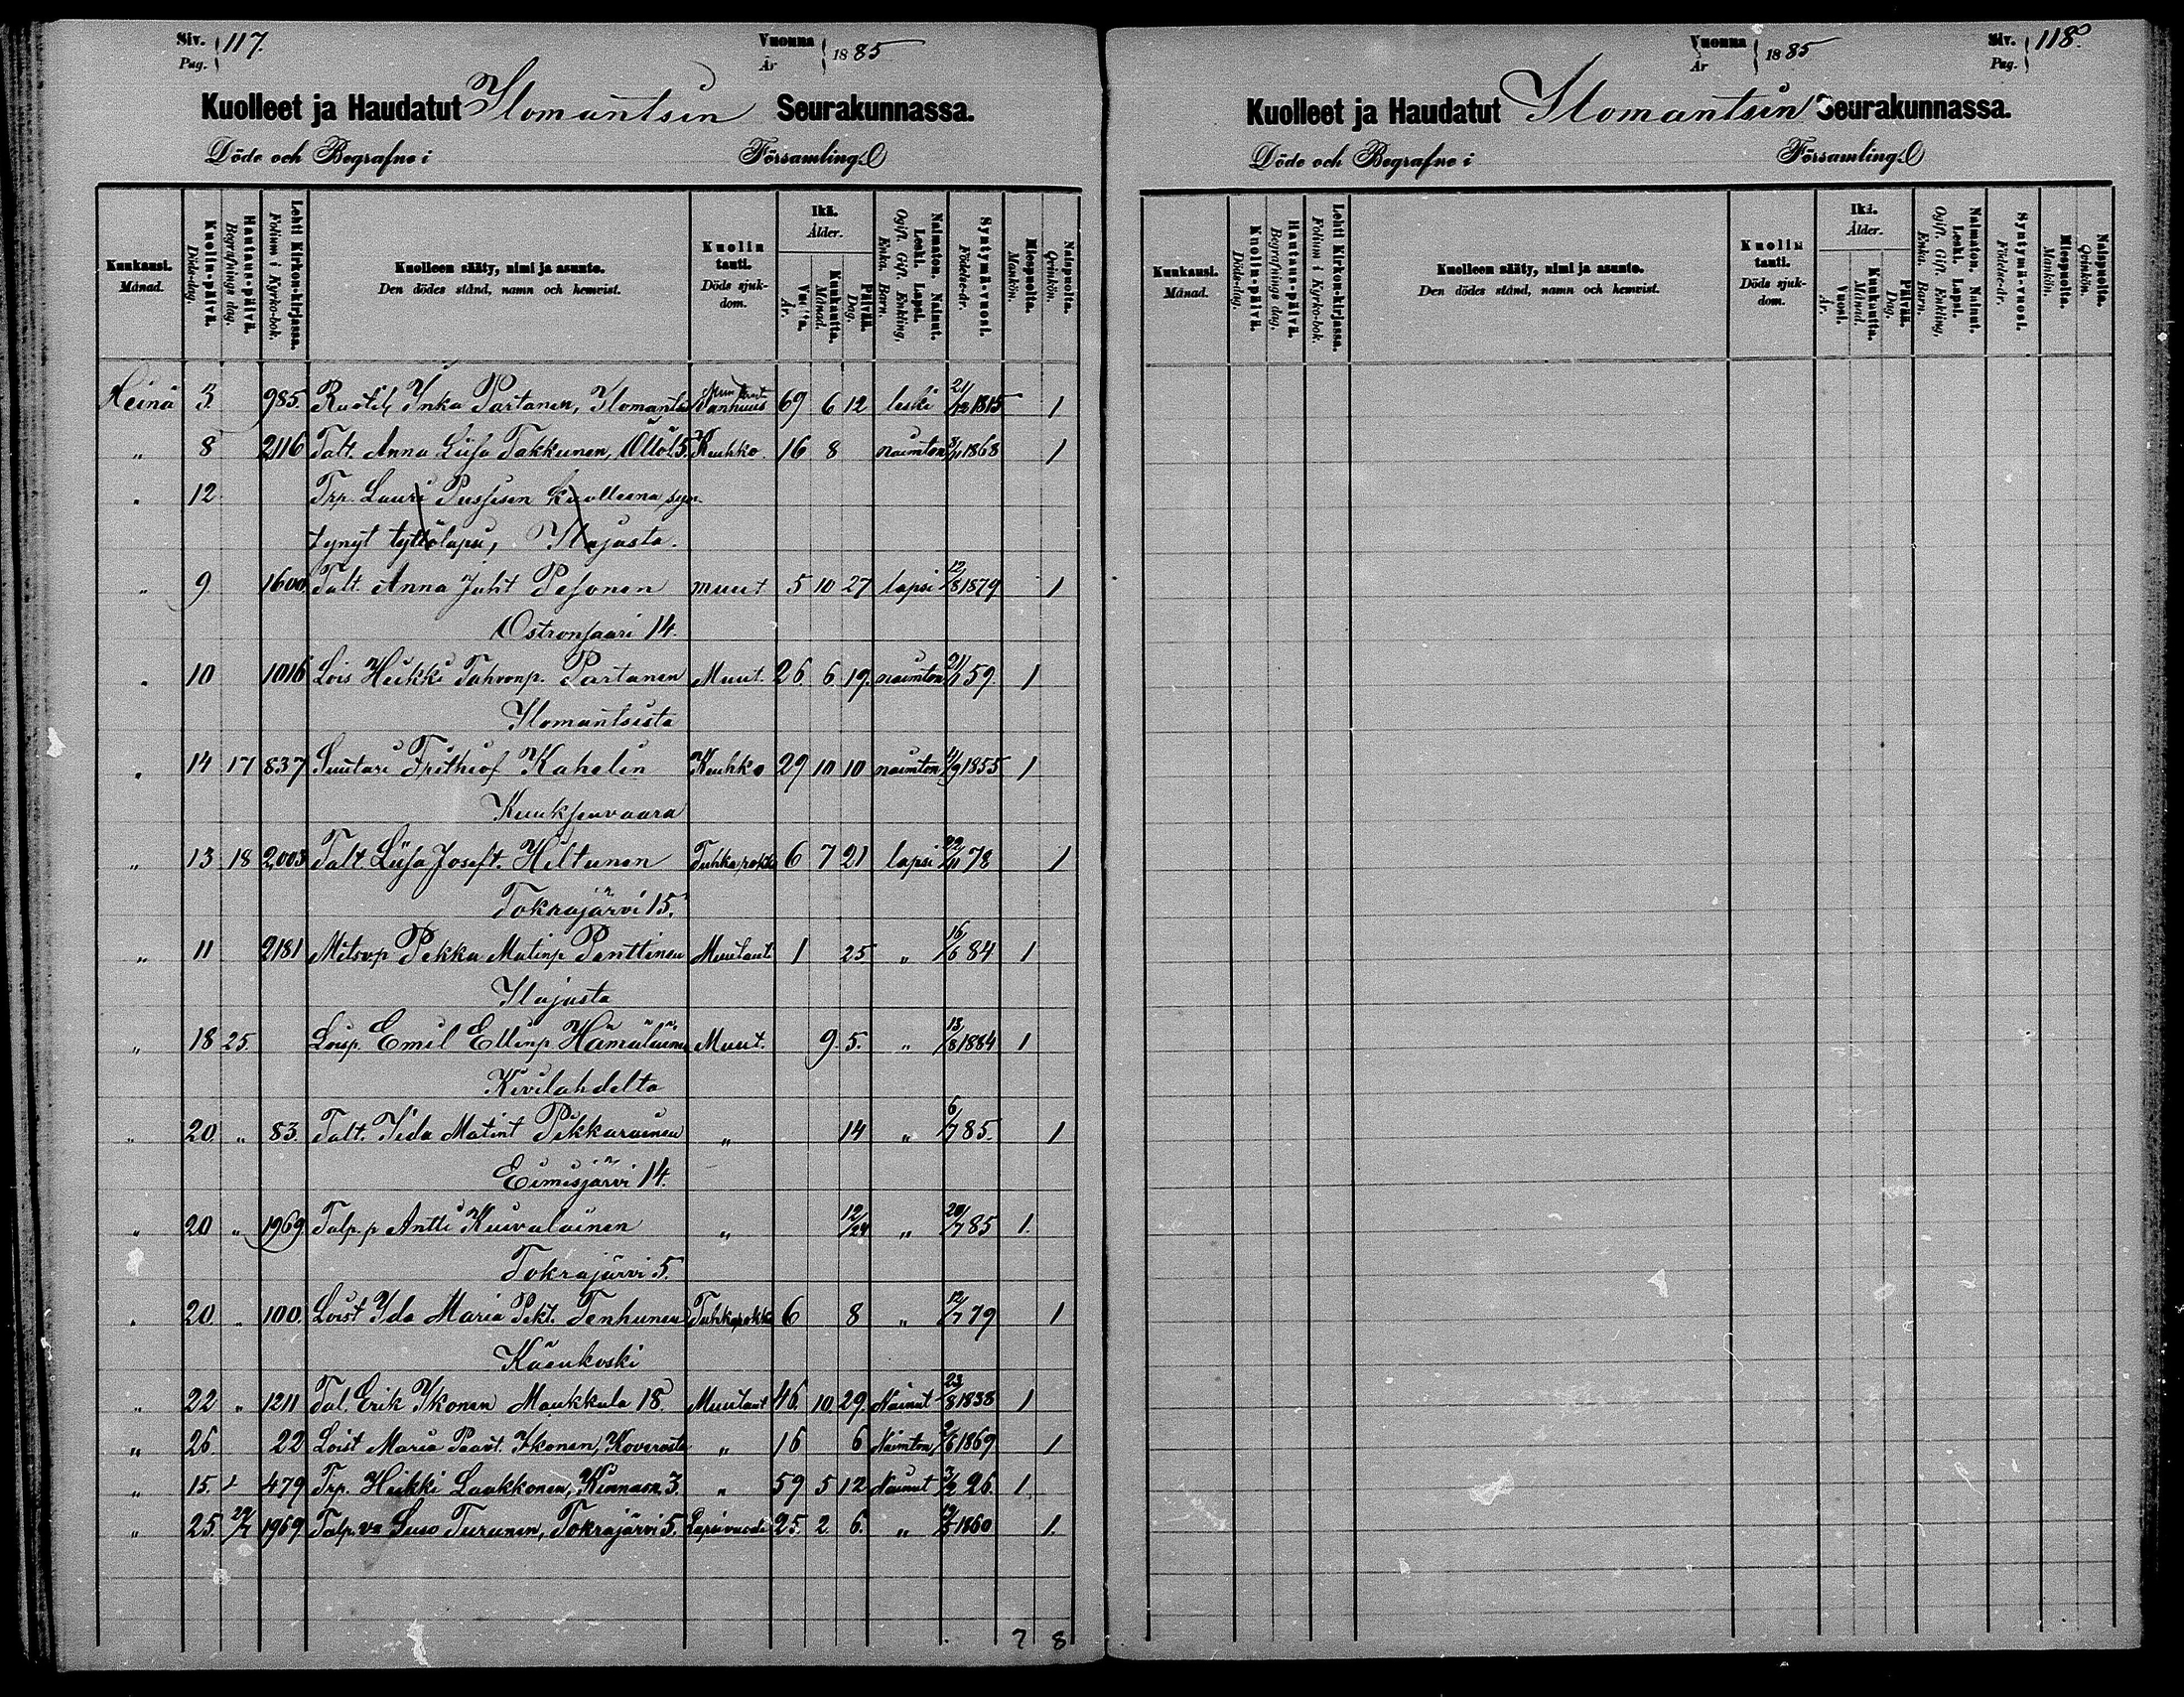 Siv. Pag. 117.
Vuonna År 1885
Kuolleet ja Haudatut Ilomantsin Seurakunnassa.
Döde och Begrafne i Församling.
Kuukausi. Månad.
Kuolin-päivä. Döds-dag.
Hautaus-päivä. Begrafnings dag.
Lehti Kirkon-kirjassa. Folium i Kyrko-bok.
Kuolleen sääty, nimi ja asunto.
Den dödes stånd, namn och hemvist.
Kuolin tauti. Döds sjuk-dom.
Ikä. Ålder.
Vuotta. År.
Kuukautta. Månad.
Päivää. Dag.
Naimaton. Nainut. Leski. Lapsi. Ogift. Gift. Enkling. Enka. Barn.
Syntymä-vuosi. Födelse-år.
Miespuolta. Mankön.
Naispuolta. Qvinkön.
Heinä 3. 985. Inka Partanen, Vanhuus 69 6 12 leski 21/12 1815 1
„ 8 2116 Talt. Anna Liisa Takkunen, Keuhko. 16 8 naimton 3/11 1868 1
„ 12 Trp. Lauri Pussisen kuolleena syn-
tynyt tyttölapsi, Ilajasta.
„ 9 1600 Talt. Anna Juht Pesonen muut 5 10 27 lapsi 12/8 1879 1
Ostronsaari 14.
„ 10 1016 Lois Heikki Tahvonp. Partanen Muut. 26. 6. 19. naimton 21/1 59. 1
Ilomantsista
„ 14 17 837 Suutari Frithiof Kahelin Keuhko 29 10 10 naimton 4/9 1855 1
Kuuksenvaara
„ 13 18 2003 Talt Liisa Joseft. Hiltunen Tuhkarokko 6 7 21 lapsi 22/11 78 1
Tokrajärvi 15.
„ 11 2181 Mitsvp Pekka Matinp Penttinen Muutauti 1 25 „ 16/6 84 1
Ilajasta
„ 18 25. Loisp. Emil Ellinp Hämäläinen Muut. 9. 5. „ 13/8 1884 1
Kivilahdelta
„ 20 „ 83. Talt. Iida Matint Pikkarainen „ 14 „ 6/7 85. 1
Eimisjärvi 14.
„ 20 „ 1969. Talp. p Antti Kuivalainen „ 12/24 „ 20/7 85 1.
Tokrajärvi 5.
„ 20 „ 100. Loist Ida Maria Pekt. Tenhunen Tuhkarokko 6 8 „ 12/7 79 1
Käenkoski
„ 22 „ 1211 Tal. Erik Ikonen Maukkula 18. Muutaut 46. 10. 29. Nainut 23/8 1838 1
„ 26. 22 Loist Maria Paavt. Ikonen, Koverosta „ 16 6 Naimton 2/6 1869 1
„ 15. 479 Trp. Heikki Laakkonen, Kinnasn. 3. „ 59 5 12 Nainut 3/2 26. 1
„ 25. 29/7 1969 Talp. va Suso Turunen, Tokrajärvi 5. Lapsivuode 25. 2. 6. „ 19/5 1860 1.
7 8
Vuonna År 1885
Siv. Pag. 118.
Kuolleet ja Haudatut Ilomantsin Seurakunnassa.
Döde och Begrafne i Församling.
Kuukausi. Månad.
Kuolin-päivä. Döds-dag.
Hautaus-päivä. Begrafnings dag.
Lehti Kirkon-kirjassa. Folium i Kyrko-bok.
Kuolleen sääty, nimi ja asunto.
Den dödes stånd, namn och hemvist.
Kuolin tauti. Döds sjuk-dom.
Ikä. Ålder.
Vuosi. År.
Kuukautta. Månad.
Päivää. Dag.
Naimaton. Nainut. Leski. Lapsi. Ogift. Gift. Enkling. Enka. Barn.
Syntymä-vuosi. Födelse-år.
Miespuolta. Mankön.
Naispuolta. Qvinkön.